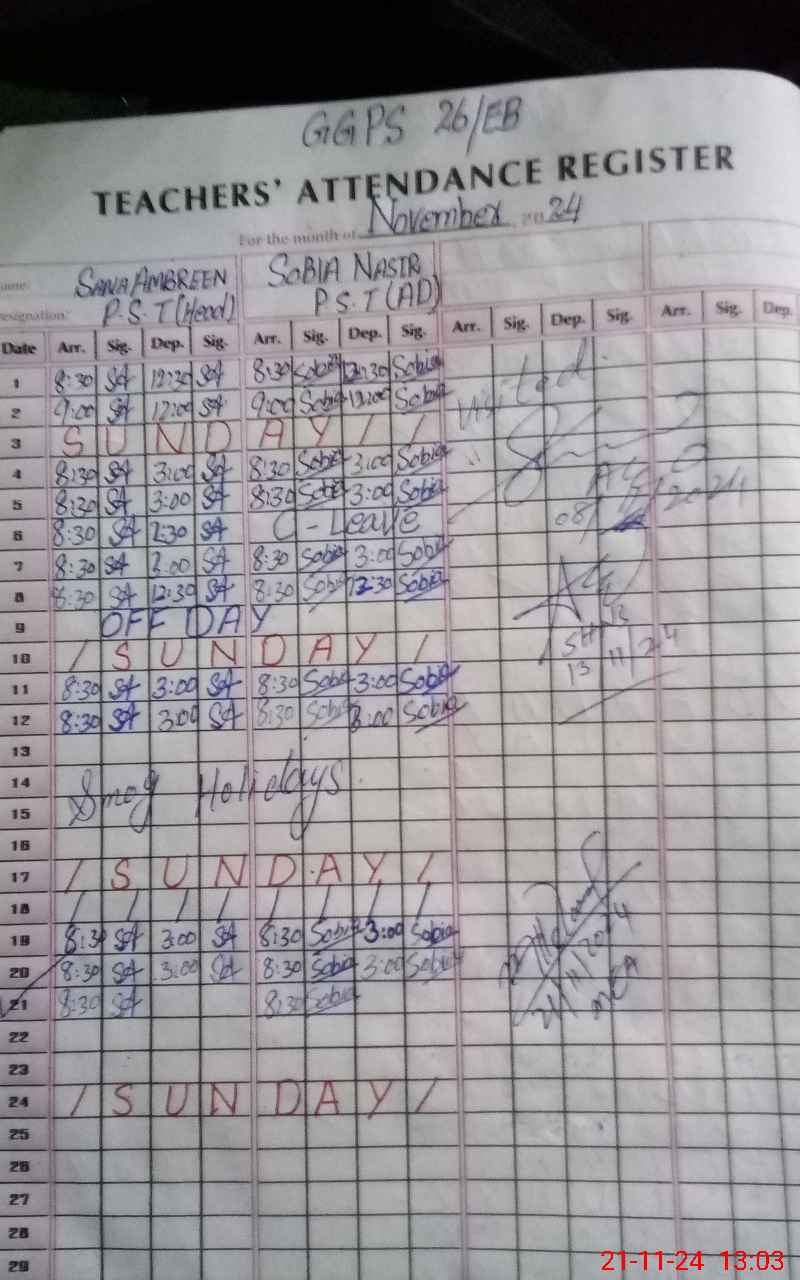 GGPS 26/EB
TEACHERS' ATTENDANCE REGISTER
For the month of November 2024
Name: SANA AMBREEN SOBIA NASIR
Designation: P.S.T (Head) P.S.T (AD)
Date Arr. Sig. Dep. Sig. Arr. Sig. Dep. Sig. Arr. Sig. Dep. Sig. Arr. Sig. Dep.
1 8:30 SA 12:30 SA 8:30 Sobia 12:30 Sobia
2 9:00 SA 12:00 SA 9:00 Sobia 12:00 Sobia visited.
3 S U N D A Y / /
4 8:30 SA 3:00 SA 8:30 Sobia 3:00 Sobia
5 8:30 SA 3:00 SA 8:30 Sobia 3:00 Sobia
6 8:30 SA 2:30 SA C-Leave 08/ /2024
7 8:30 SA 2:00 SA 8:30 Sobia 3:00 Sobia
8 8:30 SA 12:30 SA 8:30 Sobia 12:30 Sobia
9 OFF DAY
10 / S U N D A Y / 13/11/24
11 8:30 SA 3:00 SA 8:30 Sobia 3:00 Sobia
12 8:30 SA 3:00 SA 8:30 Sobia 3:00 Sobia
13
14 Smog Holidays.
15
16
17 / S U N D A Y /
18 / / / / / / / /
19 8:30 SA 3:00 SA 8:30 Sobia 3:00 Sobia
20 8:30 SA 3:00 SA 8:30 Sobia 3:00 Sobia 21/11/2024
21 8:30 SA 8:30 Sobia MEA
22
23
24 / S U N D A Y /
25
26
27
28
29
21-11-24 13:03